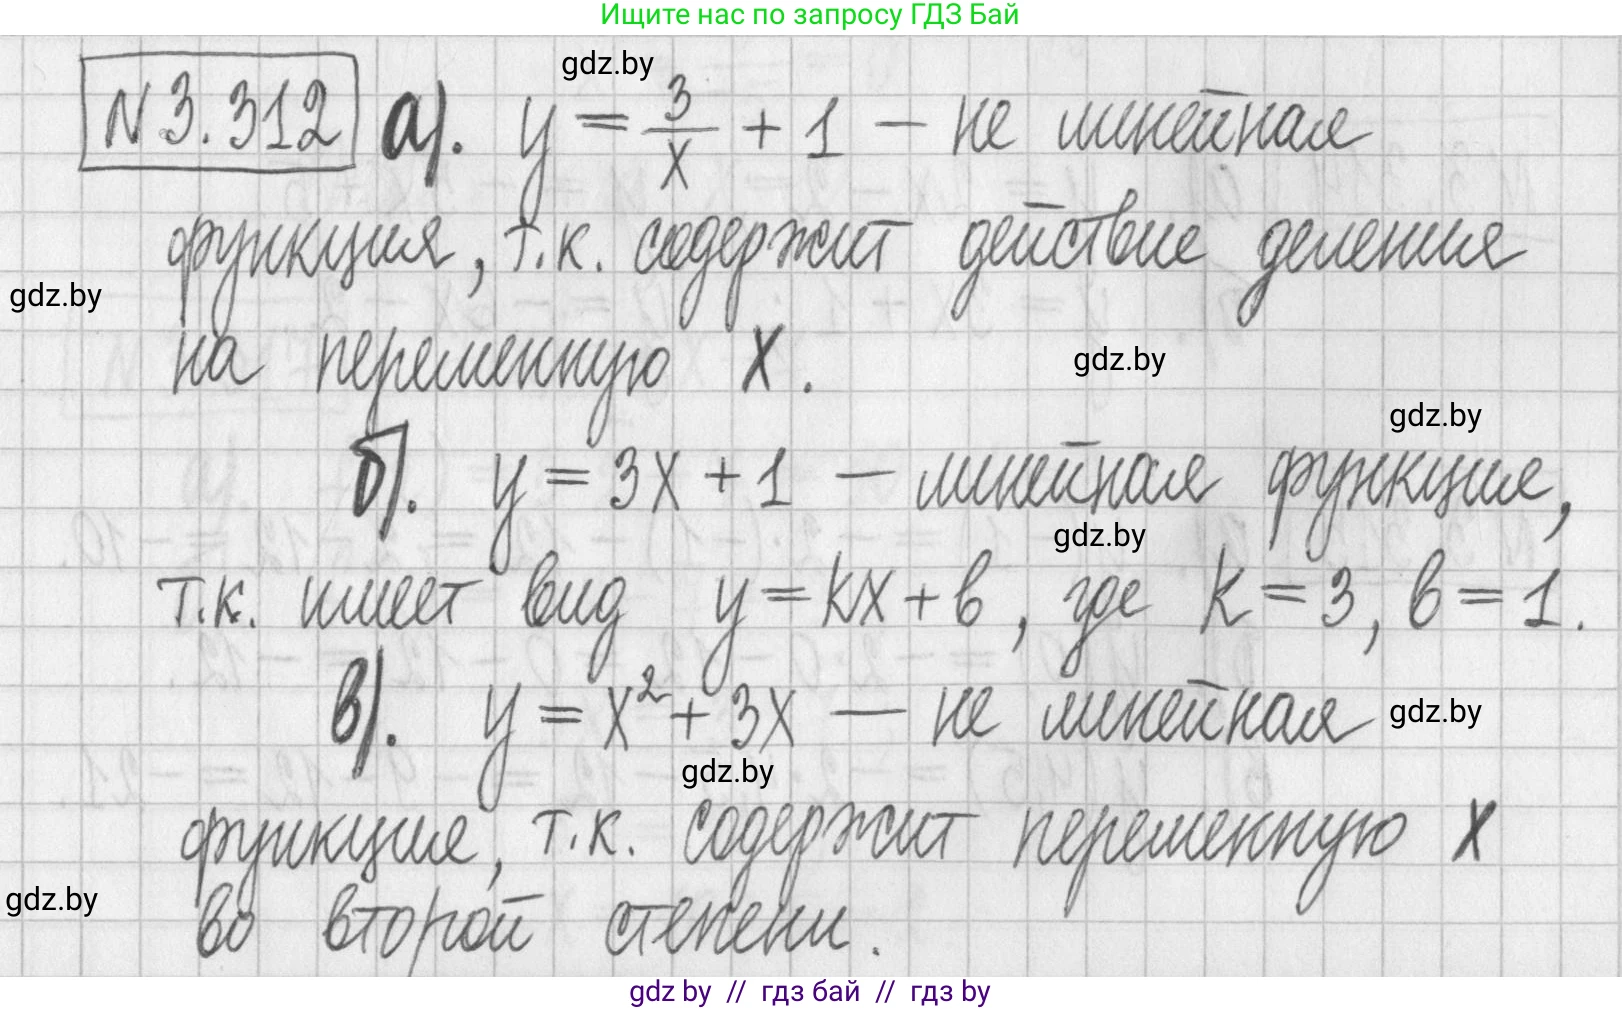 Ищите нас по запросу ГДЗ Бай
gdz.by
N 3.312 а). y = 3/x + 1 - не линейная
функция, т.к. содержит действие деления
gdz.by
на переменную x.
gdz.by
gdz.by
б). y = 3x + 1 - линейная функция,
gdz.by
т.к. имеет вид y = kx + b, где k = 3, b = 1.
в). y = x² + 3x - не линейная
gdz.by
gdz.by
функция, т.к. содержит переменную x
gdz.by
во второй степени.
gdz by // гдз бай // гдз by